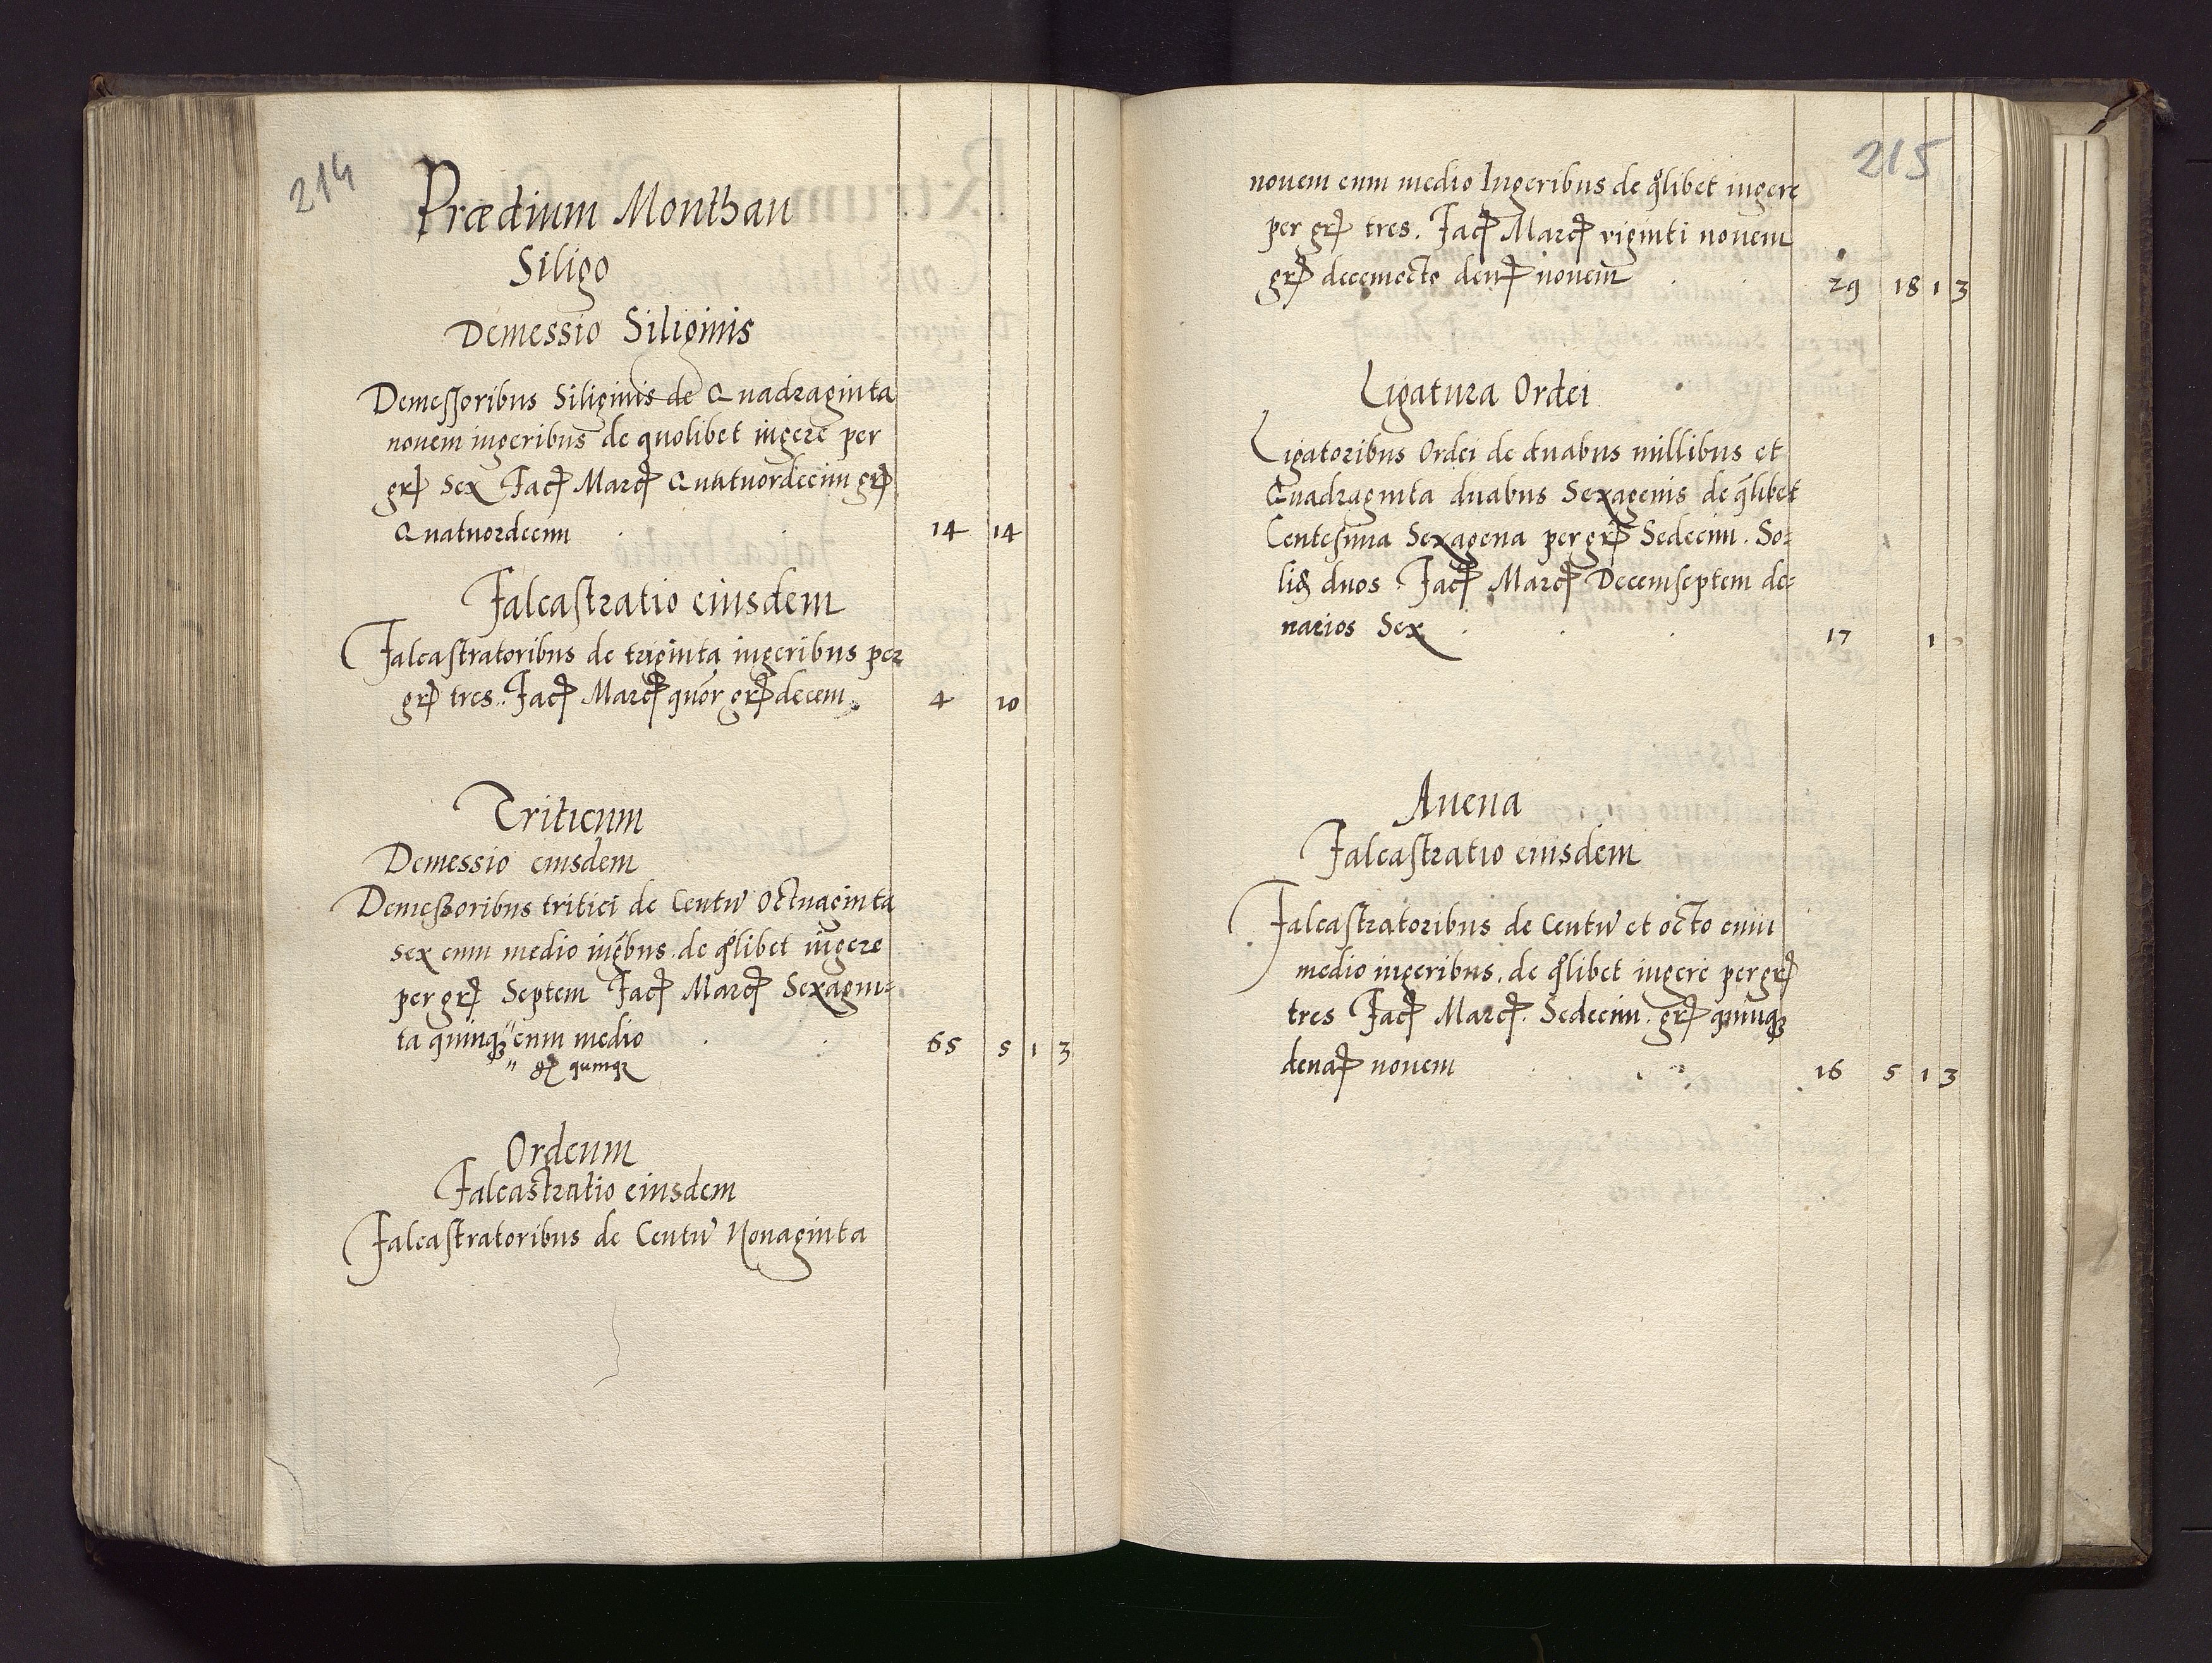 214
Prædium Monthau
Siligo
Demessio Siliginis
Demessoribus Siliginis de Quadraginta
nouem iugeribus de quolibet iugere per
grꝭ Sex Facꝭ Marcꝭ Quatuordecim grꝭ
Quatuordecim 14 14
Falcastratio eiusdem
Falcastratoribus de triginta iugeribus per
grꝭ tres. Facꝭ Marcꝭ quor grꝭ decem. 4 10
Triticum
Demessio eiusdem
Demessoribus tritici de Centu Octuaginta
sex cum medio iugbus de qlibet iugere
per grꝭ Septem Facꝭ Marcꝭ Sexagin=
ta quinqꝫ " cum medio 65 5 1 3
" grꝭ quinqꝫ
Ordeum
Falcastratio eiusdem
Falcastratoribus de Centu Nonaginta
215
nouem cum medio Iugeribus de qlibet iugere
per grꝭ tres. Facꝭ Marcꝭ viginti nouem
grꝭ decemocto denꝭ nouem 29 18 1 3
Ligatura Ordei
Ligatoribus Ordei de duabus millibus et
Quadraginta duabus Sexagenis de qlibet
Centesima Sexagena per grꝭ Sedecim. So=
lidꝭ duos Facꝭ Marcꝭ Decemseptem de=
narios Sex 17 1
Auena
Falcastratio eiusdem
Falcastratoribus de Centu et octo cum
medio iugeribus. de qlibet iugere per grꝭ
tres Facꝭ Marcꝭ. Sedecim. grꝭ quinqꝫ
denaꝭ nouem 16 5 1 3